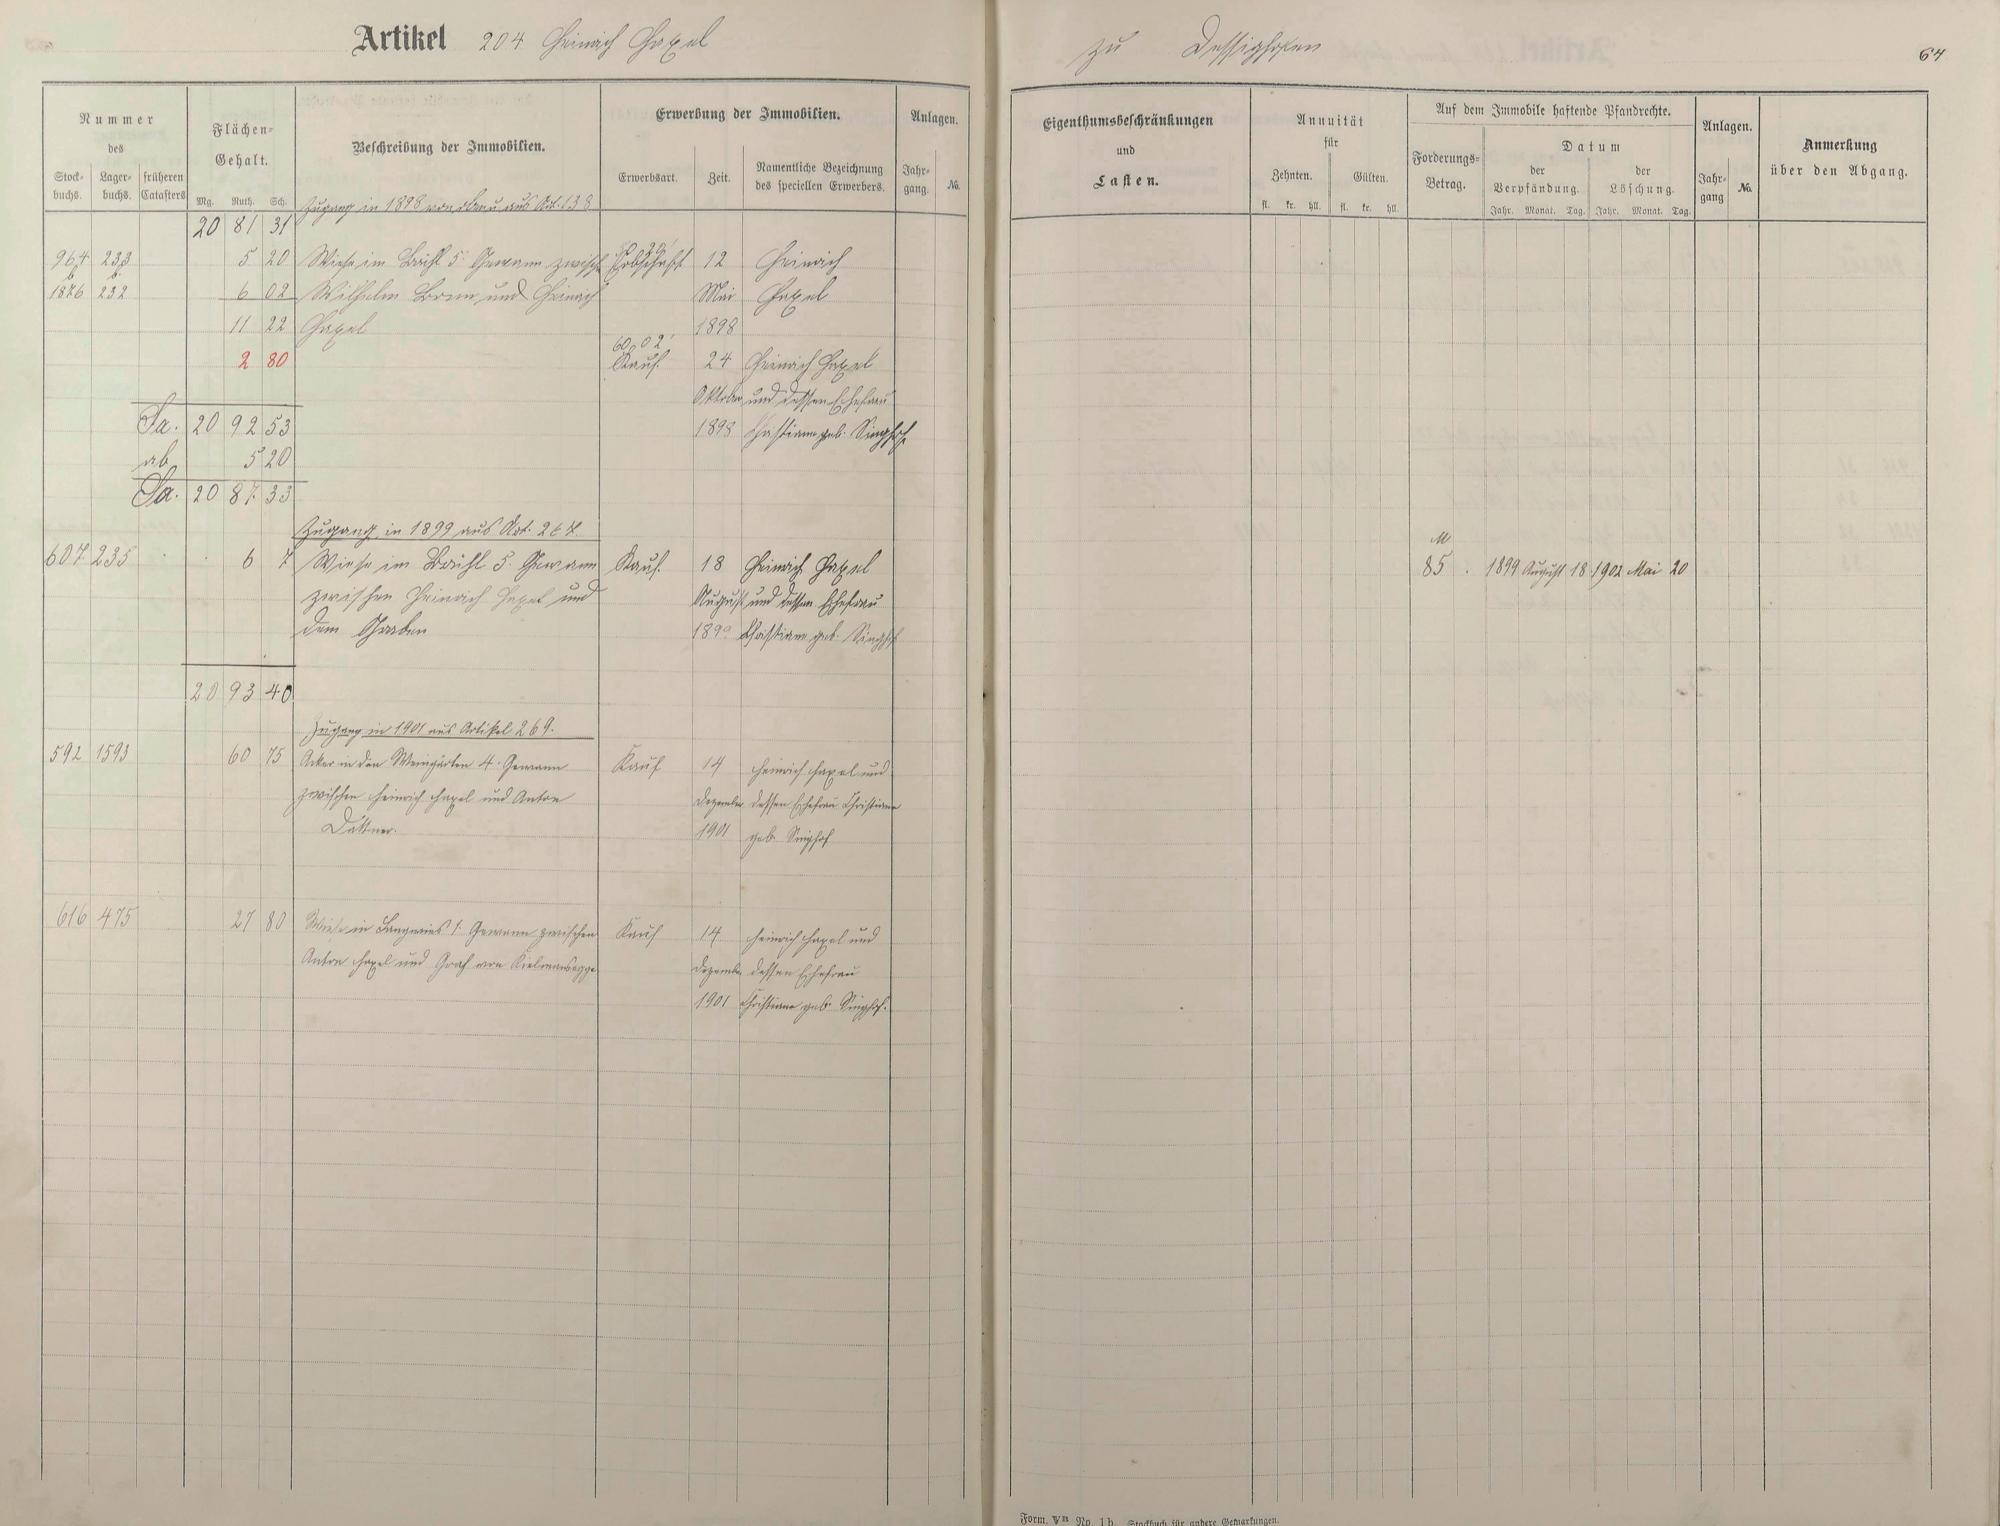 Artikel 204 Heinrich Hapel
Nummer
des
Stock-
buchs.
Lager-
buchs.
früheren
Catasters
Flächen-
Gehalt.
Mg. Ruth. Sch.
Beschreibung der Immobilien.
Erwerbung der Immobilien.
Erwerbsart.
Zeit.
Namentliche Bezeichnung
des speciellen Erwerbers.
Anlagen.
Jahr-
gang.
No.
Zugang in 1898 aus Art. 138
20 81 31
964 233 5 20 Wiese im Brühl 5. Gewann zwisch Erbschaft 12 Heinrich
1876 232 6 02 Wilhelm und Heinrich Mai Hapel
11 22 Hapel 1898
60,02
2 80 Kauf. 24 Heinrich Hapel
Oktober und dessen Ehefrau
Sa. 20 92 53 1898 Christiane geb. Singhof
ab 5 20
Sa. 20 87 33
Zugang in 1899 aus Art. 267.
607 235 6 7 Wiese im Brühl 5. Gewann Kauf. 18 Heinrich Hapel
zwischen Heinrich Hapel und August und dessen Ehefrau
dem Graben 1899 Christiane geb. Singhof
20 93 40
Zugang in 1901 aus Artikel 269.
592 1593 60 75 Acker in den Weingärten 4. Gewann Kauf 14 Heinrich Hapel und
zwischen Heinrich Hapel und Anton Dezember dessen Ehefrau Christiane
Dattner. 1901 geb. Singhof
616 475 27 80 Wiese in Langwies 1. Gewann zwischen Kauf 14 Heinrich Hapel und
Anton Hapel und Graf von Kielmansegge Dezember dessen Ehefrau
1901 Christiane geb. Singhof.
zu Dessighofen
64
Eigenthumsbeschränkungen
und
Lasten.
Annuität
für
Zehnten.
Gülten.
fl. kr. hll. fl. kr. hll.
Auf dem Immobile haftende Pfandrechte.
Forderungs-
Betrag.
Datum
der
Verpfändung.
der
Löschung.
Jahr. Monat. Tag. Jahr. Monat. Tag.
Anlagen.
Jahr-
gang
No.
Anmerkung
über den Abgang.
M
85 . 1899 August 18 1902 Mai 20
Form. No. 1b. Stockbuch für andere Gemarkungen.